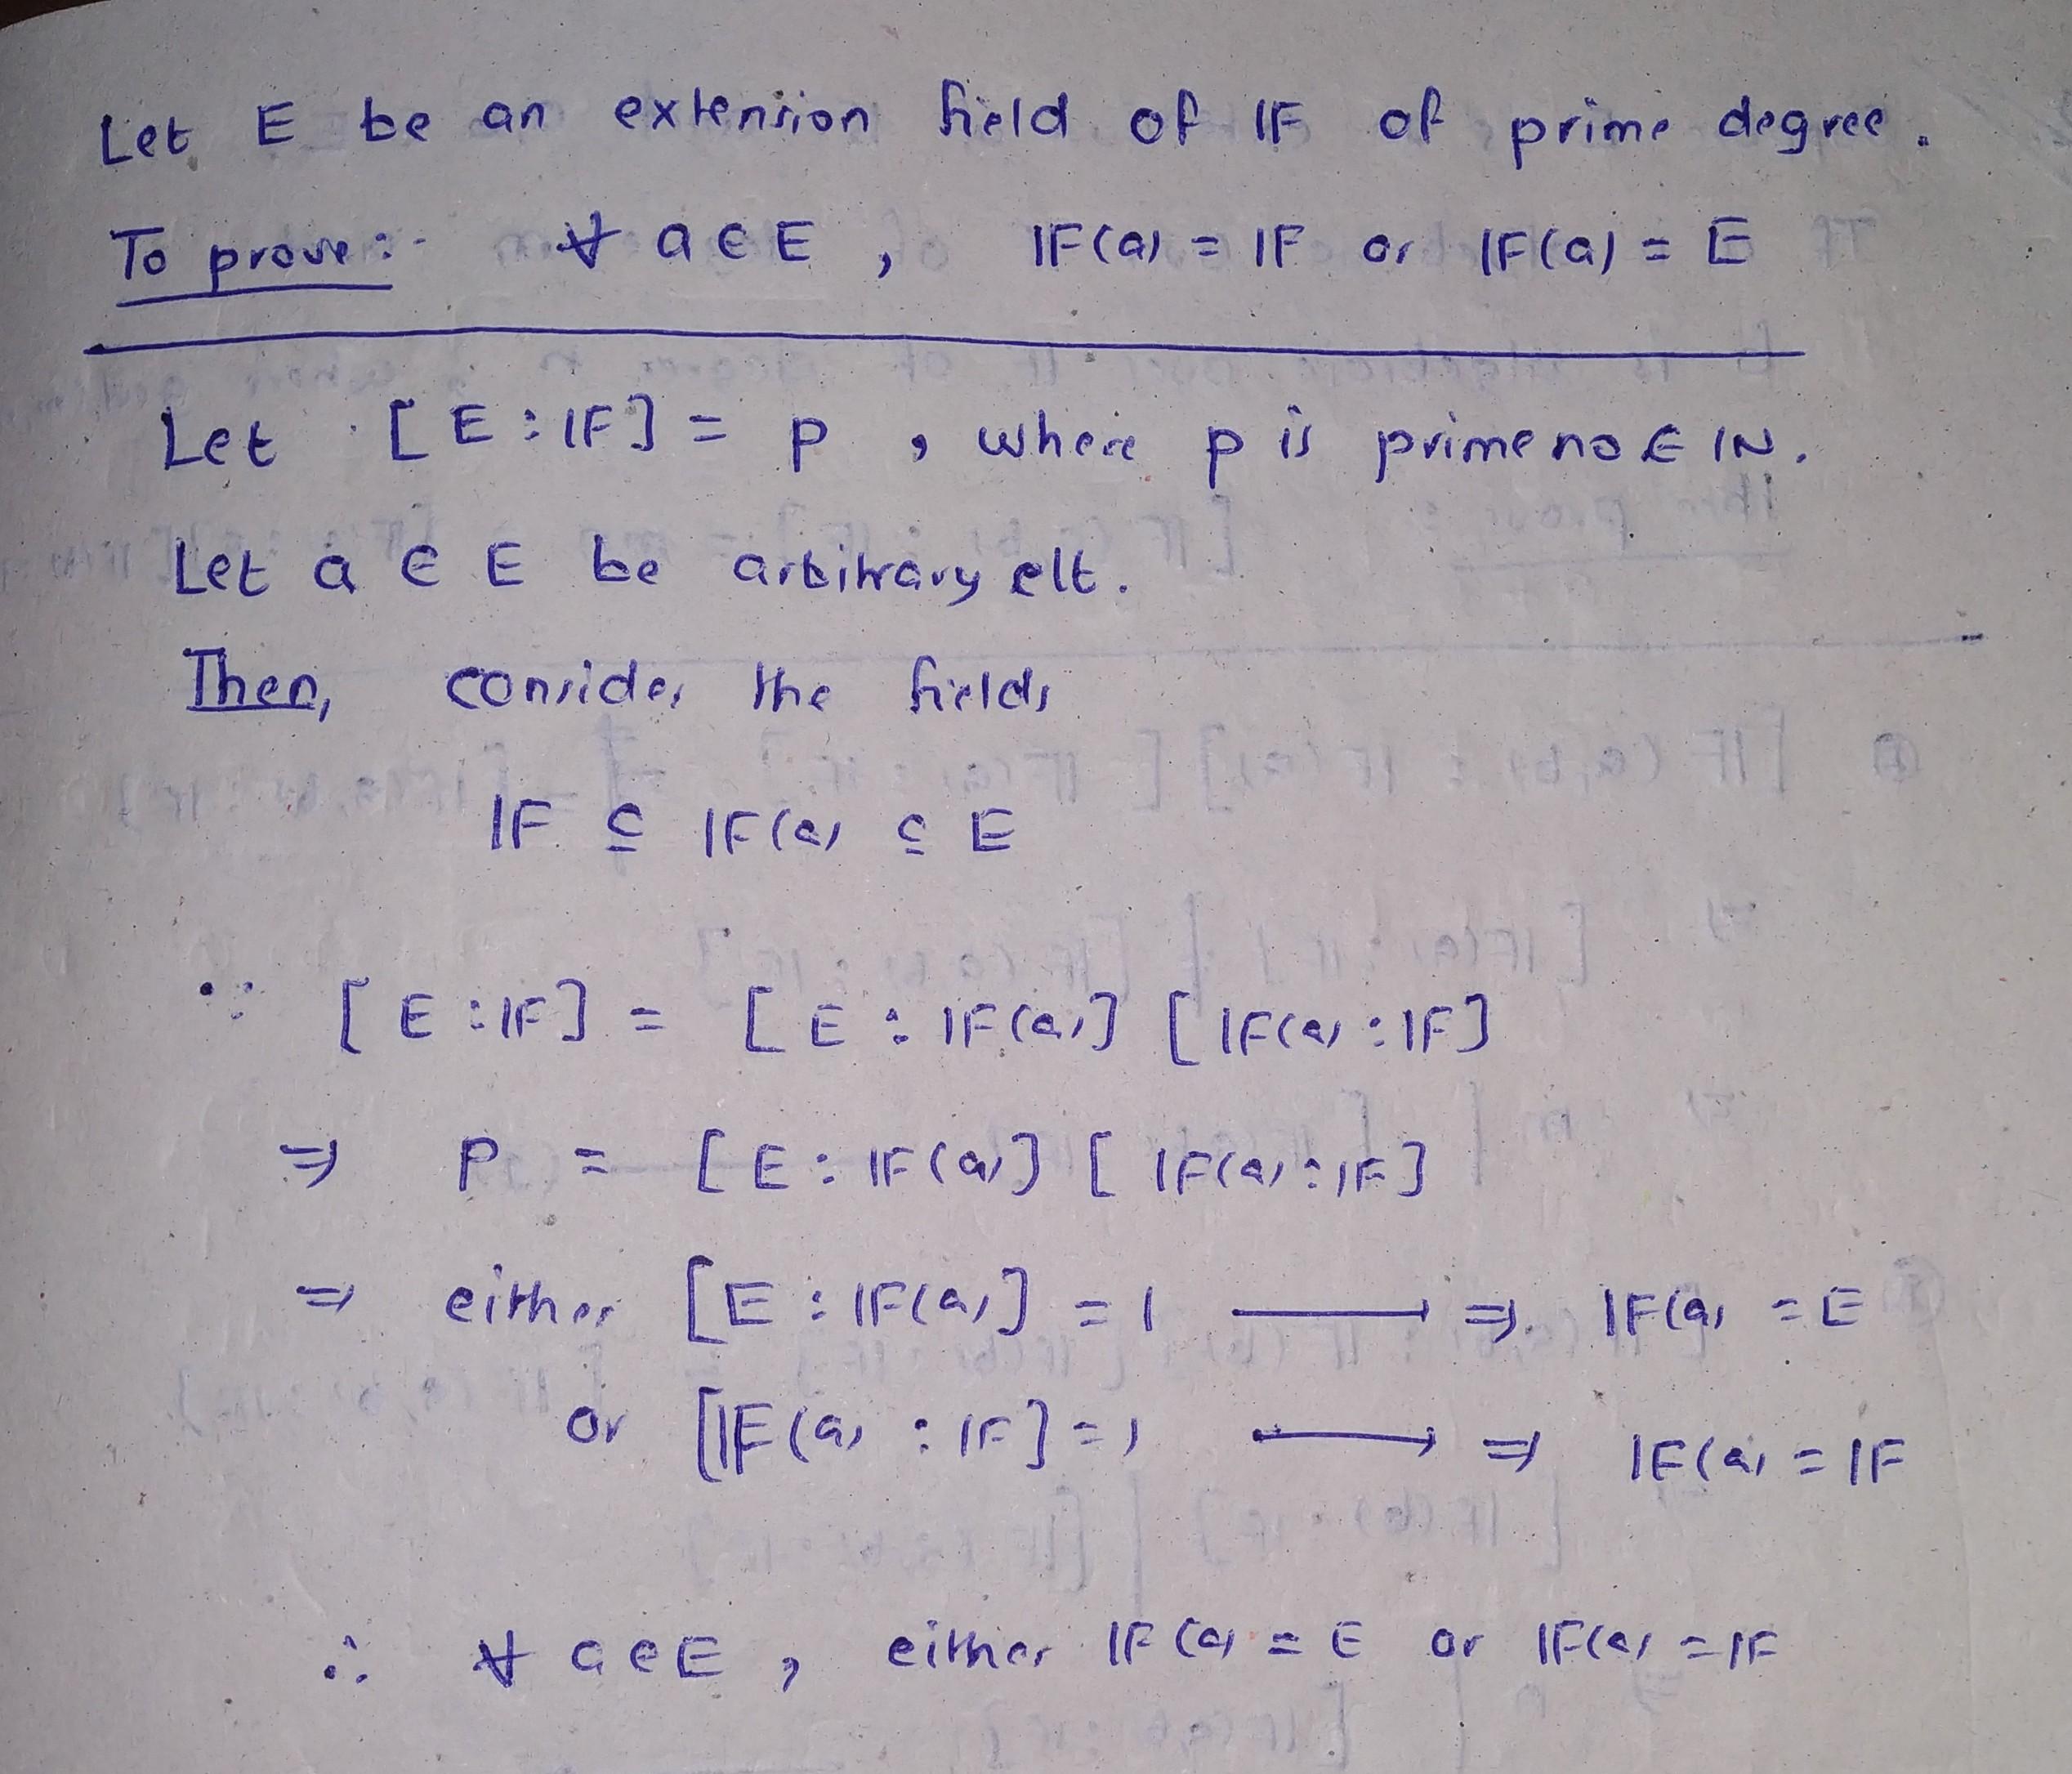 Let E be an extension field of 𝔽 of prime degree.
To prove:- ∀ a ∈ E , 𝔽(a) = 𝔽 or 𝔽(a) = E
Let [E : 𝔽] = p , where p is prime no ∈ ℕ.
Let a ∈ E be arbitrary elt.
Then, consider the fields
𝔽 ⊆ 𝔽(a) ⊆ E
∵ [E : 𝔽] = [E : 𝔽(a)] [𝔽(a) : 𝔽]
⇒ p = [E : 𝔽(a)] [𝔽(a) : 𝔽]
⇒ either [E : 𝔽(a)] = 1 ⟶ ⇒ 𝔽(a) = E
or [𝔽(a) : 𝔽] = 1 ⟶ ⇒ 𝔽(a) = 𝔽
∴ ∀ a ∈ E , either 𝔽(a) = E or 𝔽(a) = 𝔽